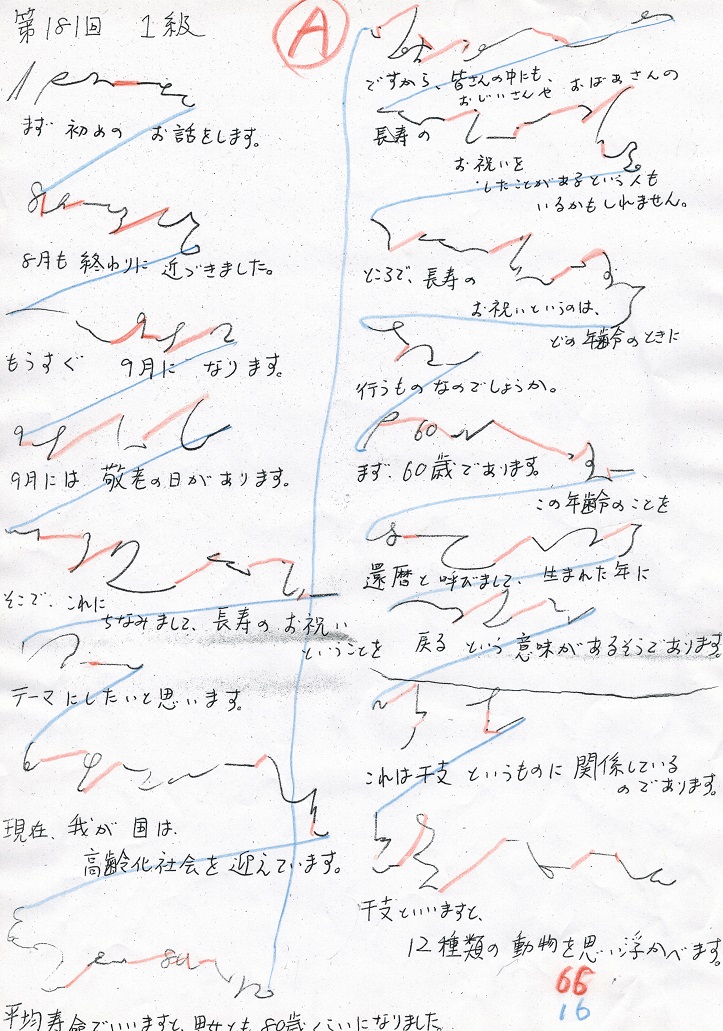 第181回 1級
A
まず 初めの お話をします。
8月も 終わりに 近づきました。
もうすぐ 9月に なります。
9月には 敬老の日があります。
そこで、これに
ちなみまして、長寿の お祝い
ということを
テーマにしたいと思います。
現在、我が国は、
高齢化社会を迎えています。
平均寿命でいいますと、男女とも 80歳くらいになりました。
ですから、皆さんの中にも、
おじいさんや おばあさんの
長寿の
お祝いを
したことがあるという人も
いるかもしれません。
ところで、長寿の
お祝いというのは、
どの年齢のときに
行うものなのでしょうか。
まず、60歳であります。
この年齢のことを
還暦と呼びまして、生まれた年に
戻る という意味があるそうであります。
これは干支 というものに 関係している
のであります。
干支といいますと、
12種類の動物を思い浮かべます。
66
16